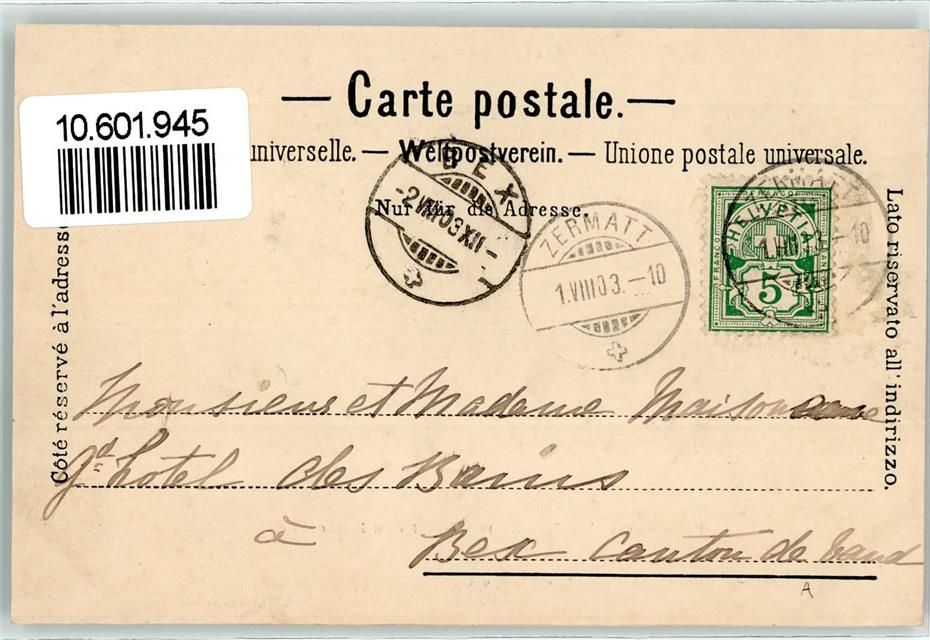 Carte postale.
10.601.945
universelle. — Weltpostverein. — Unione postale universale.
Nur für die Adresse.
BEX
-2.VIII.03.XII-
ZERMATT
1.VIII.03.-10
ZERMATT
FRANCO
HELVETIA
FRANCO
5
Côté réservé à l'adresse
Lato riservato all'indirizzo.
Monsieur et Madame
Gd hotel des Bains
à
Bex canton de Vaud
A